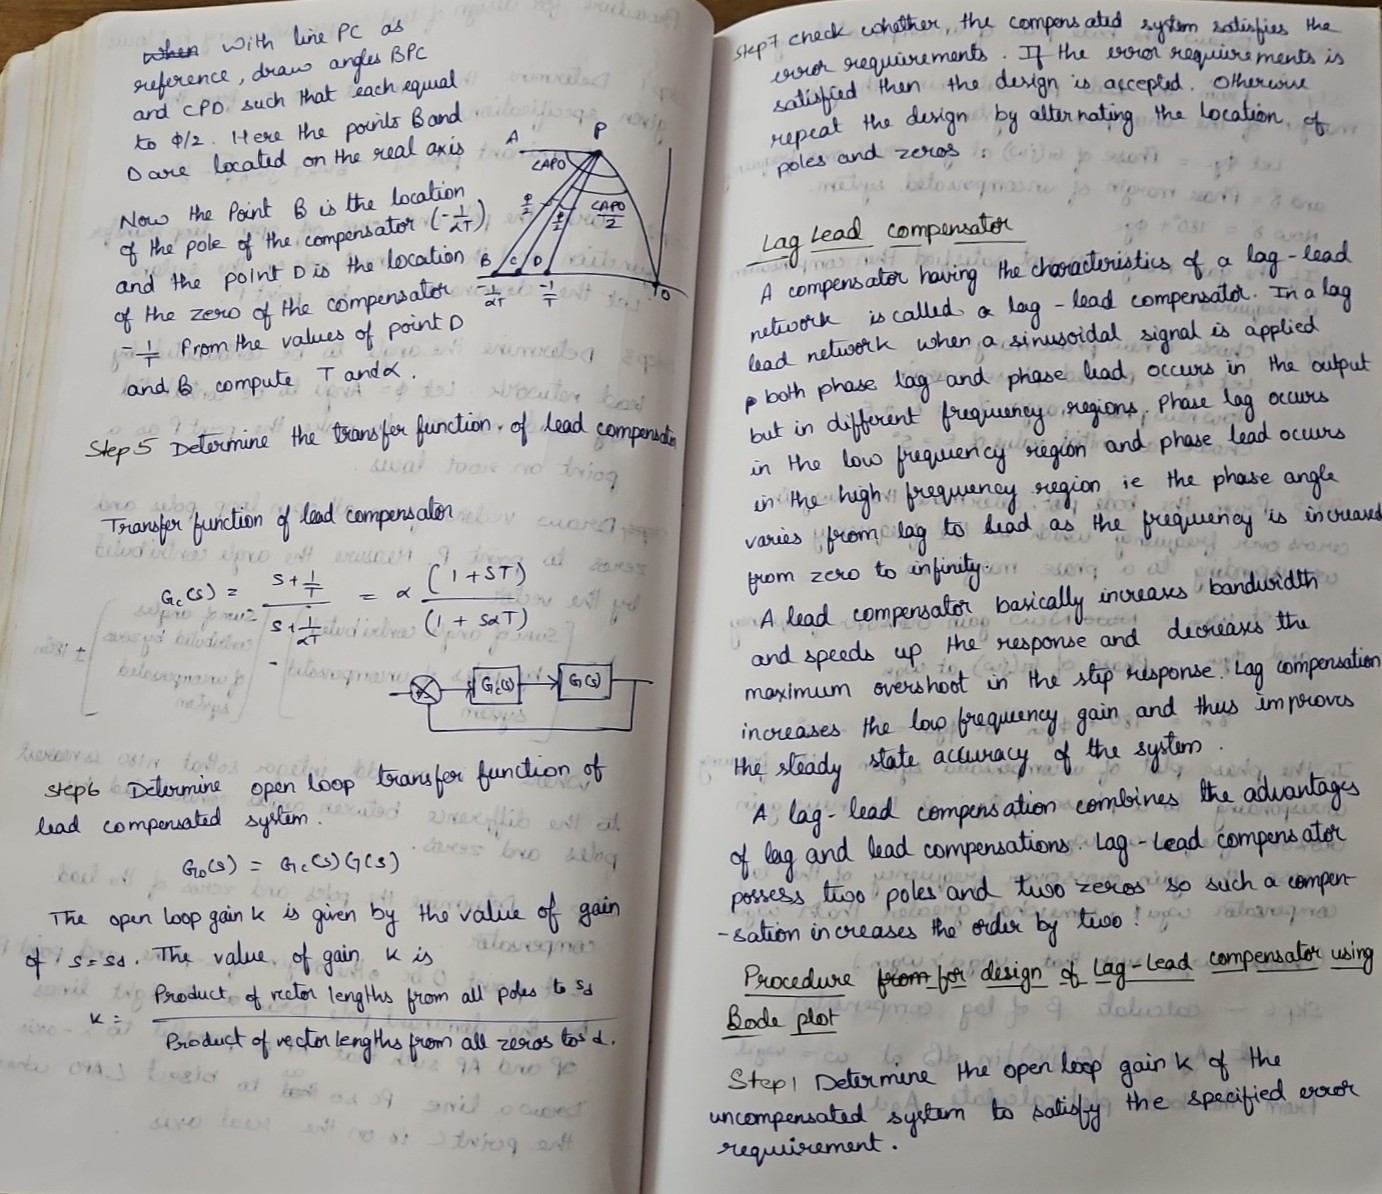 when with line PC as
reference, draw angles BPC
and CPD. such that each equal
to φ/2. Here the points B and
D are located on the real axis
Now the Point B is the location
of the pole of the compensator (-1/αT),
and the point D is the location
of the zero of the compensator
-1/T From the values of point D
and B compute T and α.
A P
∠APO
φ/2 φ/2 ∠APO/2
B C D
-1/αT -1/T O
Step 5 Determine the transfer function of lead compensator
Transfer function of lead compensator
Gc(s) = (s + 1/T) / (s + 1/αT) = α (1 + ST) / (1 + SαT)
Gc(s) G(s)
Step 6 Determine open loop transfer function of
lead compensated system.
Go(s) = Gc(s) G(s)
The open loop gain K is given by the value of gain
of s = sd. The value of gain K is
K = Product of vector lengths from all poles to sd / Product of vector lengths from all zeros to sd.
Step 7 check whether, the compensated system satisfies the
error requirements. If the error requirements is
satisfied then the design is accepted. Otherwise
repeat the design by alternating the location of
poles and zeros
Lag Lead compensator
A compensator having the characteristics of a lag-lead
network is called a lag-lead compensator. In a lag
lead network when a sinusoidal signal is applied
both phase lag and phase lead, occurs in the output
but in different frequency regions. Phase lag occurs
in the low frequency region and phase lead occurs
in the high frequency region ie the phase angle
varies from lag to lead as the frequency is increased
from zero to infinity.
A lead compensator basically increases bandwidth
and speeds up the response and decreases the
maximum overshoot in the step response. Lag compensation
increases the low frequency gain and thus improves
the steady state accuracy of the system.
A lag-lead compensation combines the advantages
of lag and lead compensations. Lag-Lead compensator
possess two poles and two zeros so such a compen-
-sation increases the order by two!
Procedure from for design of Lag-Lead compensator using
Bode plot
Step 1 Determine the open loop gain K of the
uncompensated system to satisfy the specified error
requirement.